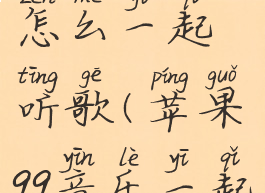 怎么一起
tīng gē píng guǒ
听歌(苹果
yīn lè yī qǐ
99音乐一起